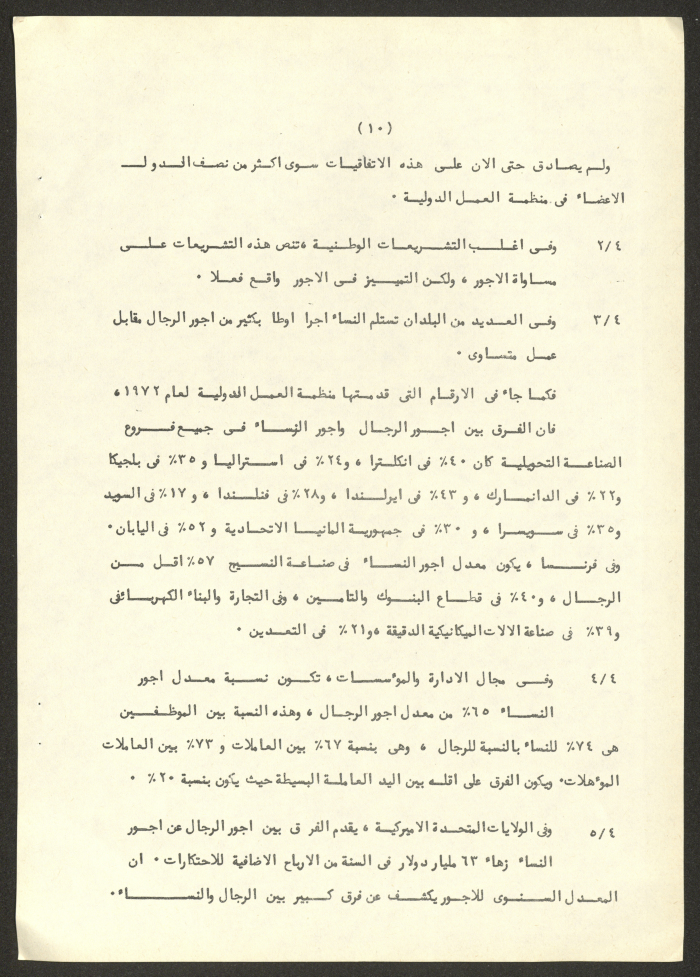 (١٠)
ولم يصادق حتى الان على هذه الاتفاقيات سوى اكثر من نصف الدول
الاعضاء فى منظمة العمل الدولية ٠
٢/٤ وفى اغلب التشريعات الوطنية ، تنص هذه التشريعات على
مساواة الاجور ، ولكن التمييز فى الاجور واقع فعلا ٠
٣/٤ وفى العديد من البلدان تستلم النساء اجرا اوطا بكثير من اجور الرجال مقابل
عمل متساوى ٠
فكما جاء فى الارقام التى قدمتها منظمة العمل الدولية لعام ١٩٧٢ ،
فان الفرق بين اجور الرجال واجور النساء فى جميع فروع
الصناعة التحويلية كان ٤٠٪ فى انكلترا ، و٢٤٪ فى استراليا و ٣٥٪ فى بلجيكا
و٢٢٪ فى الدانمارك ، و ٤٣٪ فى ايرلندا ، و٢٨٪ فى فنلندا ، و ١٧٪ فى السويد
و٣٥٪ فى سويسرا ، و ٣٠٪ فى جمهورية المانيا الاتحادية و ٥٢٪ فى اليابان ٠
وفى فرنسا ، يكون معدل اجور النساء فى صناعة النسيج ٥٧٪ اقل من
الرجال ، و٤٠٪ فى قطاع البنوك والتامين ، وفى التجارة والبناء الكهربائى
و٣٩٪ فى صناعة الالات الميكانيكية الدقيقة ، و٢١٪ فى التعدين ٠
٤/٤ وفى مجال الادارة والمؤسسات ، تكون نسبة معدل اجور
النساء ٦٥٪ من معدل اجور الرجال ، وهذه النسبة بين الموظفين
هى ٧٤٪ للنساء بالنسبة للرجال ، وهى بنسبة ٦٧٪ بين العاملات و ٧٣٪ بين العاملات
المؤهلات ٠ ويكون الفرق على اقله بين اليد العاملة البسيطة حيث يكون بنسبة ٢٠٪ ٠
٥/٤ وفى الولايات المتحدة الاميركية ، يقدم الفرق بين اجور الرجال عن اجور
النساء زهاء ٦٣ مليار دولار فى السنة من الارباح الاضافية للاحتكارات ٠ ان
المعدل السنوى للاجور يكشف عن فرق كبير بين الرجال والنساء ٠